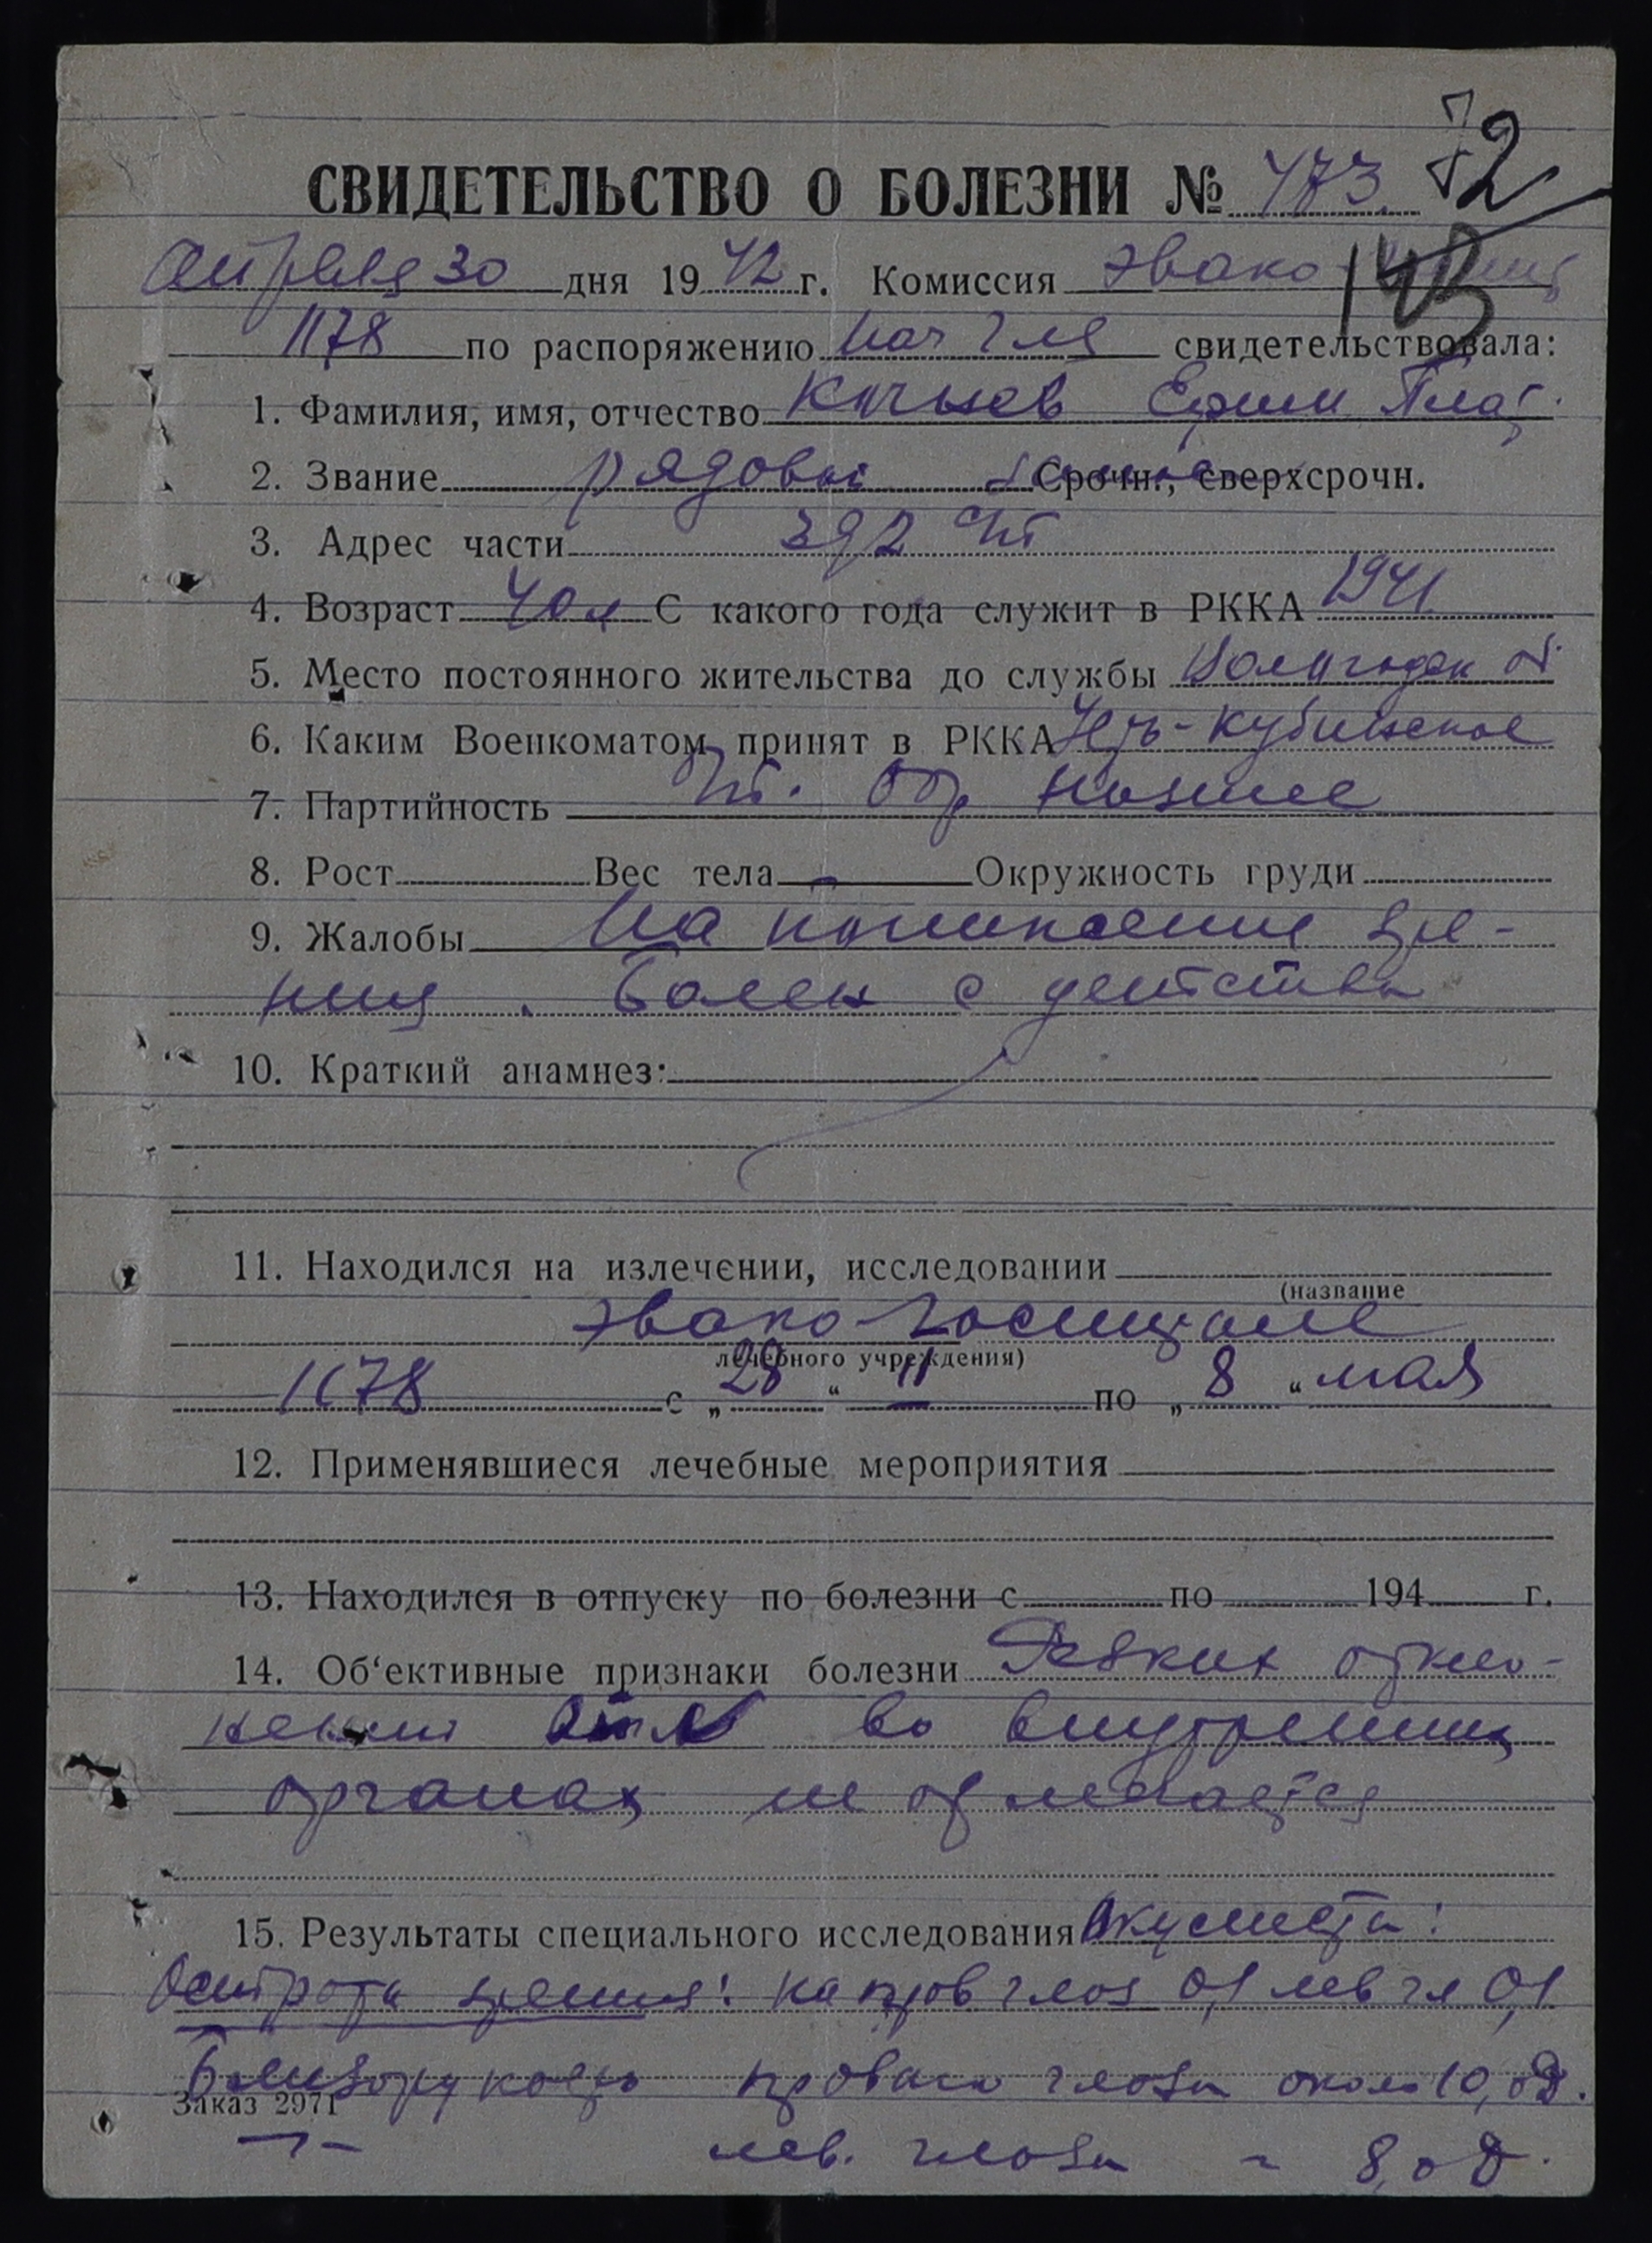 72
СВИДЕТЕЛЬСТВО О БОЛЕЗНИ № 473.
Апреля 30 дня 1942 г. Комиссия эвако
1178 по распоряжению нач г-ля свидетельствовала:
1. Фамилия, имя, отчество Ефим Плат.
2. Звание рядовой Срочн., сверхсрочн.
3. Адрес части 392 сп
4. Возраст 40 л С какого года служит в РККА 1941
5. Место постоянного жительства до службы Вологодск о.
6. Каким Военкоматом принят в РККА Усть-Кубинское
7. Партийность б/п. обр низшее
8. Рост Вес тела Окружность груди
9. Жалобы На понижение зре-
ния. Болен с детства
10. Краткий анамнез:
11. Находился на излечении, исследовании
(название
эвако-госпитале
лечебного учреждения)
1178 с „28“ II по „8“ мая
12. Применявшиеся лечебные мероприятия
13. Находился в отпуску по болезни с по 194 г.
14. Об‘ективные признаки болезни Резких откло-
нений во внутренних
органах не отмечается
15. Результаты специального исследования Окулиста:
Острота зрения: на прав глаз 0,1 лев гл 0,1
Близорукость правого глаза около 10,0D.
Заказ 2971
лев. глаза ~ 8,0D.